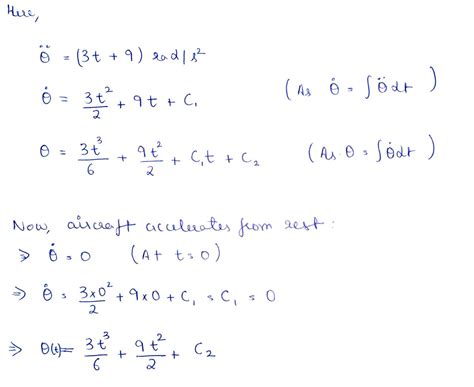 Here,
θ̈ = (3t + 9) rad/s²
θ̇ = 3t²/2 + 9t + C₁ (As θ̇ = ∫θ̈dt)
θ = 3t³/6 + 9t²/2 + C₁t + C₂ (As θ = ∫θ̇dt)
Now, aircraft accelerates from rest:
⇒ θ̇ = 0 (At t=0)
⇒ θ̇ = 3×0²/2 + 9×0 + C₁ = C₁ = 0
⇒ θ(t)= 3t³/6 + 9t²/2 + C₂